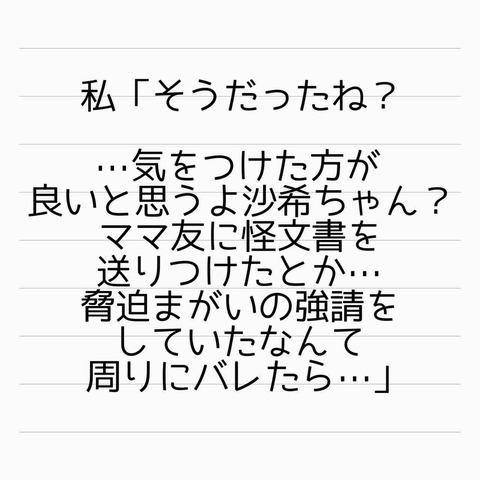 私「そうだったね？
…気をつけた方が
良いと思うよ沙希ちゃん？
ママ友に怪文書を
送りつけたとか…
脅迫まがいの強請を
していたなんて
周りにバレたら…」